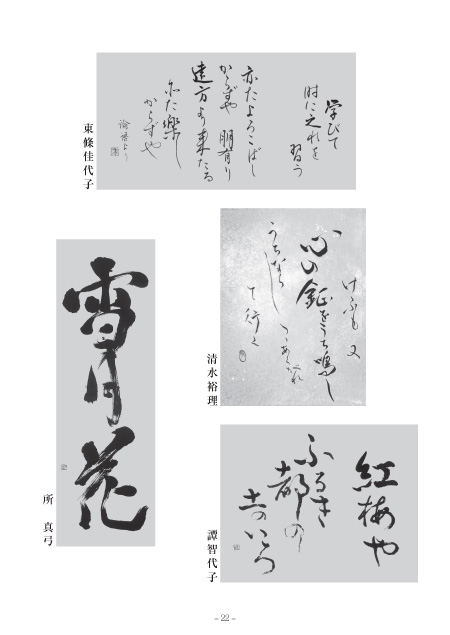 学びて
時に之れを
習う
亦たよろこばし
からずや 朋有り
遠方より来たる
亦た楽し
からずや
論語より
東條佳代子
けふも又
心の鉦をうち鳴し
うちならし
つゝあくがれ
て行く
清水裕理
雪月花
所 真弓
紅梅や
ふるき
都の
土のいろ
譚智代子
- 22 -